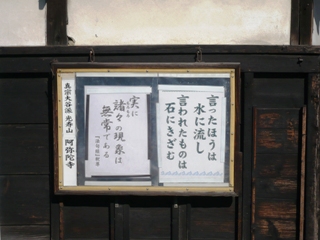 言ったほうは
水に流し
言われたものは
石にきざむ
実に
諸々の現象は
無常である
真宗大谷派 光寿山 阿弥陀寺